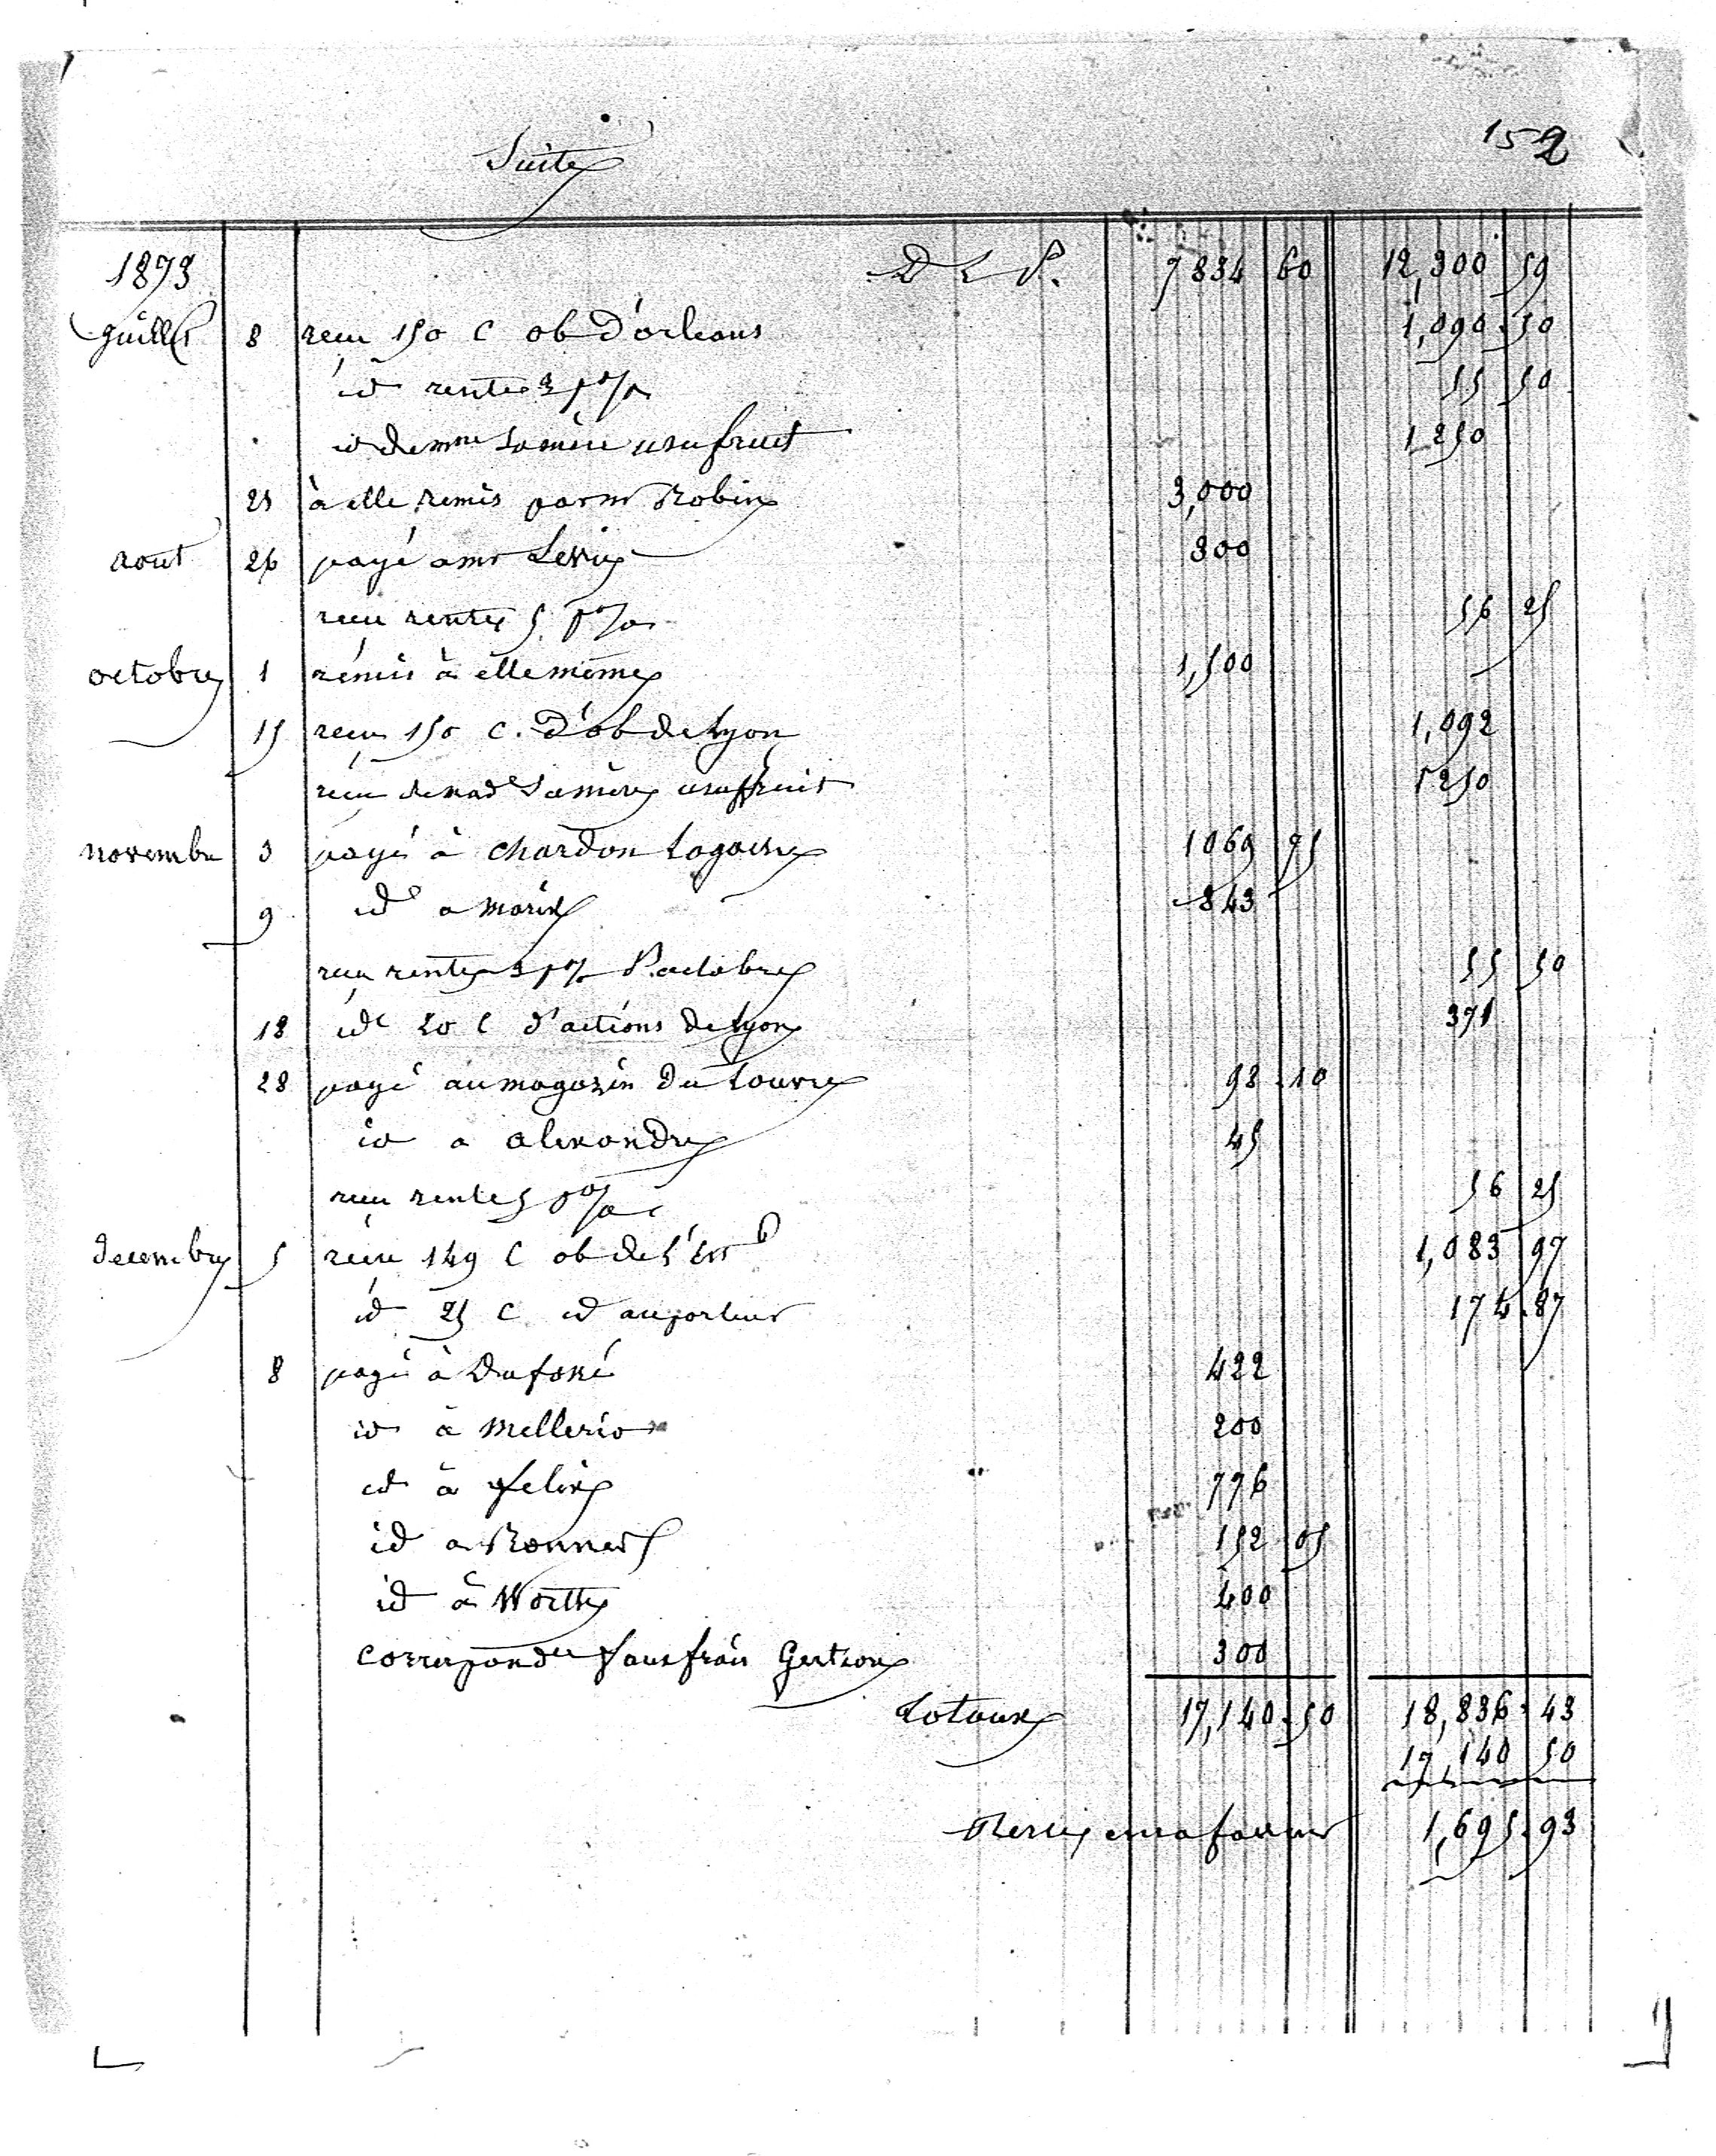 Suite 152
1873 D L P. 7834 60 12,300 59
Juillet 8 reçu 150 C ob d'orleans 1,090.50
id rente 3 p % 55 50
id de mme sa mère usufruit 1250
25 à elle remis par mr Robin 3,000
aout 26 payé a mr Lerin 300
reçu rente 5 p % 56 25
octobre 1 remis à elle meme 1,500
15 reçu 150 C. d'ob de Lyon 1,092
reçu de mad sa mère usufruit 1250
novembre 3 payé à chardon Lagache 1069 75
9 id a Morin 843
reçu rente 3 p % 1er octobre 55 50
18 id 20 C d'actions de Lyon 371
28 payé au magazin du Louvre 98.10
id a alexandre 45
reçu rente 5 p % 56 25
decembre 5 reçu 149 C ob de l'Est 1,083 97
id 25 C id au porteur 174.87
8 payé à Dufoné 422
id à Mellerio 200
id à felix 776
id a Bonnard 152 05
id à Worth 400
correspondce faux frais Gestion 300
Totaux 17,140.50 18,836.43
17,140 50
Reste en sa faveur 1,695.93